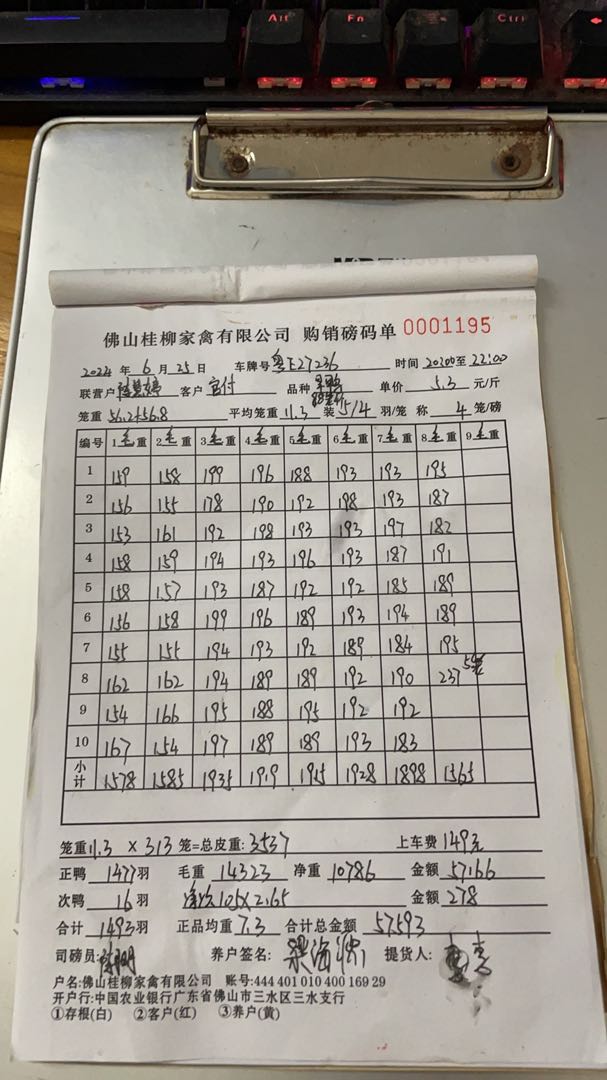 Alt Fn Ctrl
佛山桂柳家禽有限公司 购销磅码单 0001195
2024 年 6 月 25 日 车牌号 粤E27236 时间 20:00 至 22:00
联营户 婷 客户 官付 品种 单价 5.3 元/斤
笼重 56.2+56.8 平均笼重 11.3 装 5/4 羽/笼 称 4 笼/磅
编号 1毛重 2毛重 3毛重 4毛重 5毛重 6毛重 7毛重 8毛重 9毛重
1 159 158 199 196 188 193 193 195
2 156 155 178 190 192 198 193 187
3 153 161 192 198 193 193 197 182
4 158 159 194 193 196 193 187 191
5 158 157 193 187 192 192 185 189
6 156 158 199 196 189 193 194 189
7 155 155 194 193 192 189 184 195
8 162 162 194 189 189 192 190 237 5笼
9 154 166 195 188 195 192 192
10 167 154 197 189 189 193 183
小计 1578 1585 1935 1919 1915 1928 1898 1565
笼重 11.3 × 313 笼=总皮重: 3537 上车费 149元
正鸭 1477 羽 毛重 14323 净重 10786 金额 57166
次鸭 16 羽 105×2.65 金额 278
合计 1493 羽 正品均重 7.3 合计总金额 57593
司磅员: 养户签名: 梁海 提货人:
户名:佛山桂柳家禽有限公司 账号:444 401 010 400 169 29
开户行:中国农业银行广东省佛山市三水区三水支行
①存根(白) ②客户(红) ③养户(黄)